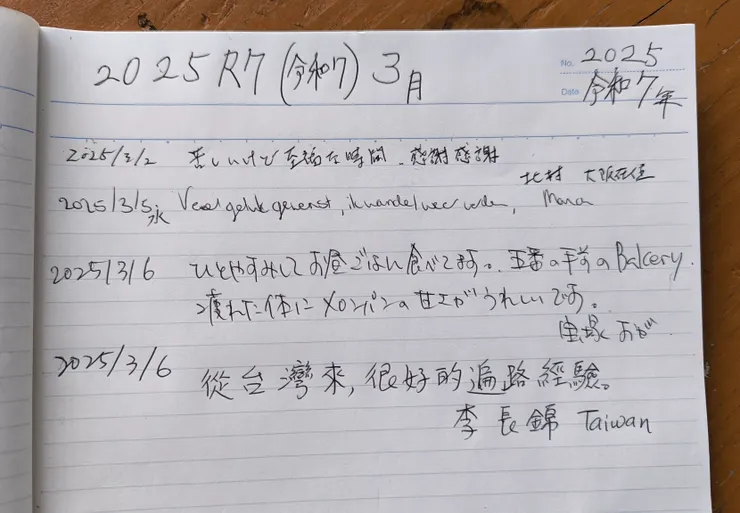 2025 R7 (令和7) 3月
No. 2025
Date 令和7年
2025/3/2 苦しいけど至福な時間、感謝感謝
北村 大阪在住
2025/3/5水 Veel geluk gewenst, ik wandel weer verder,
2025/3/6 ひとやすみしてお昼ごはん食べてます。五番の手前のBakery.
疲れた体にメロンパンの甘さがうれしいです。
宝塚 おが
2025/3/6 從台灣來,很好的遍路經驗。
李長錦 Taiwan